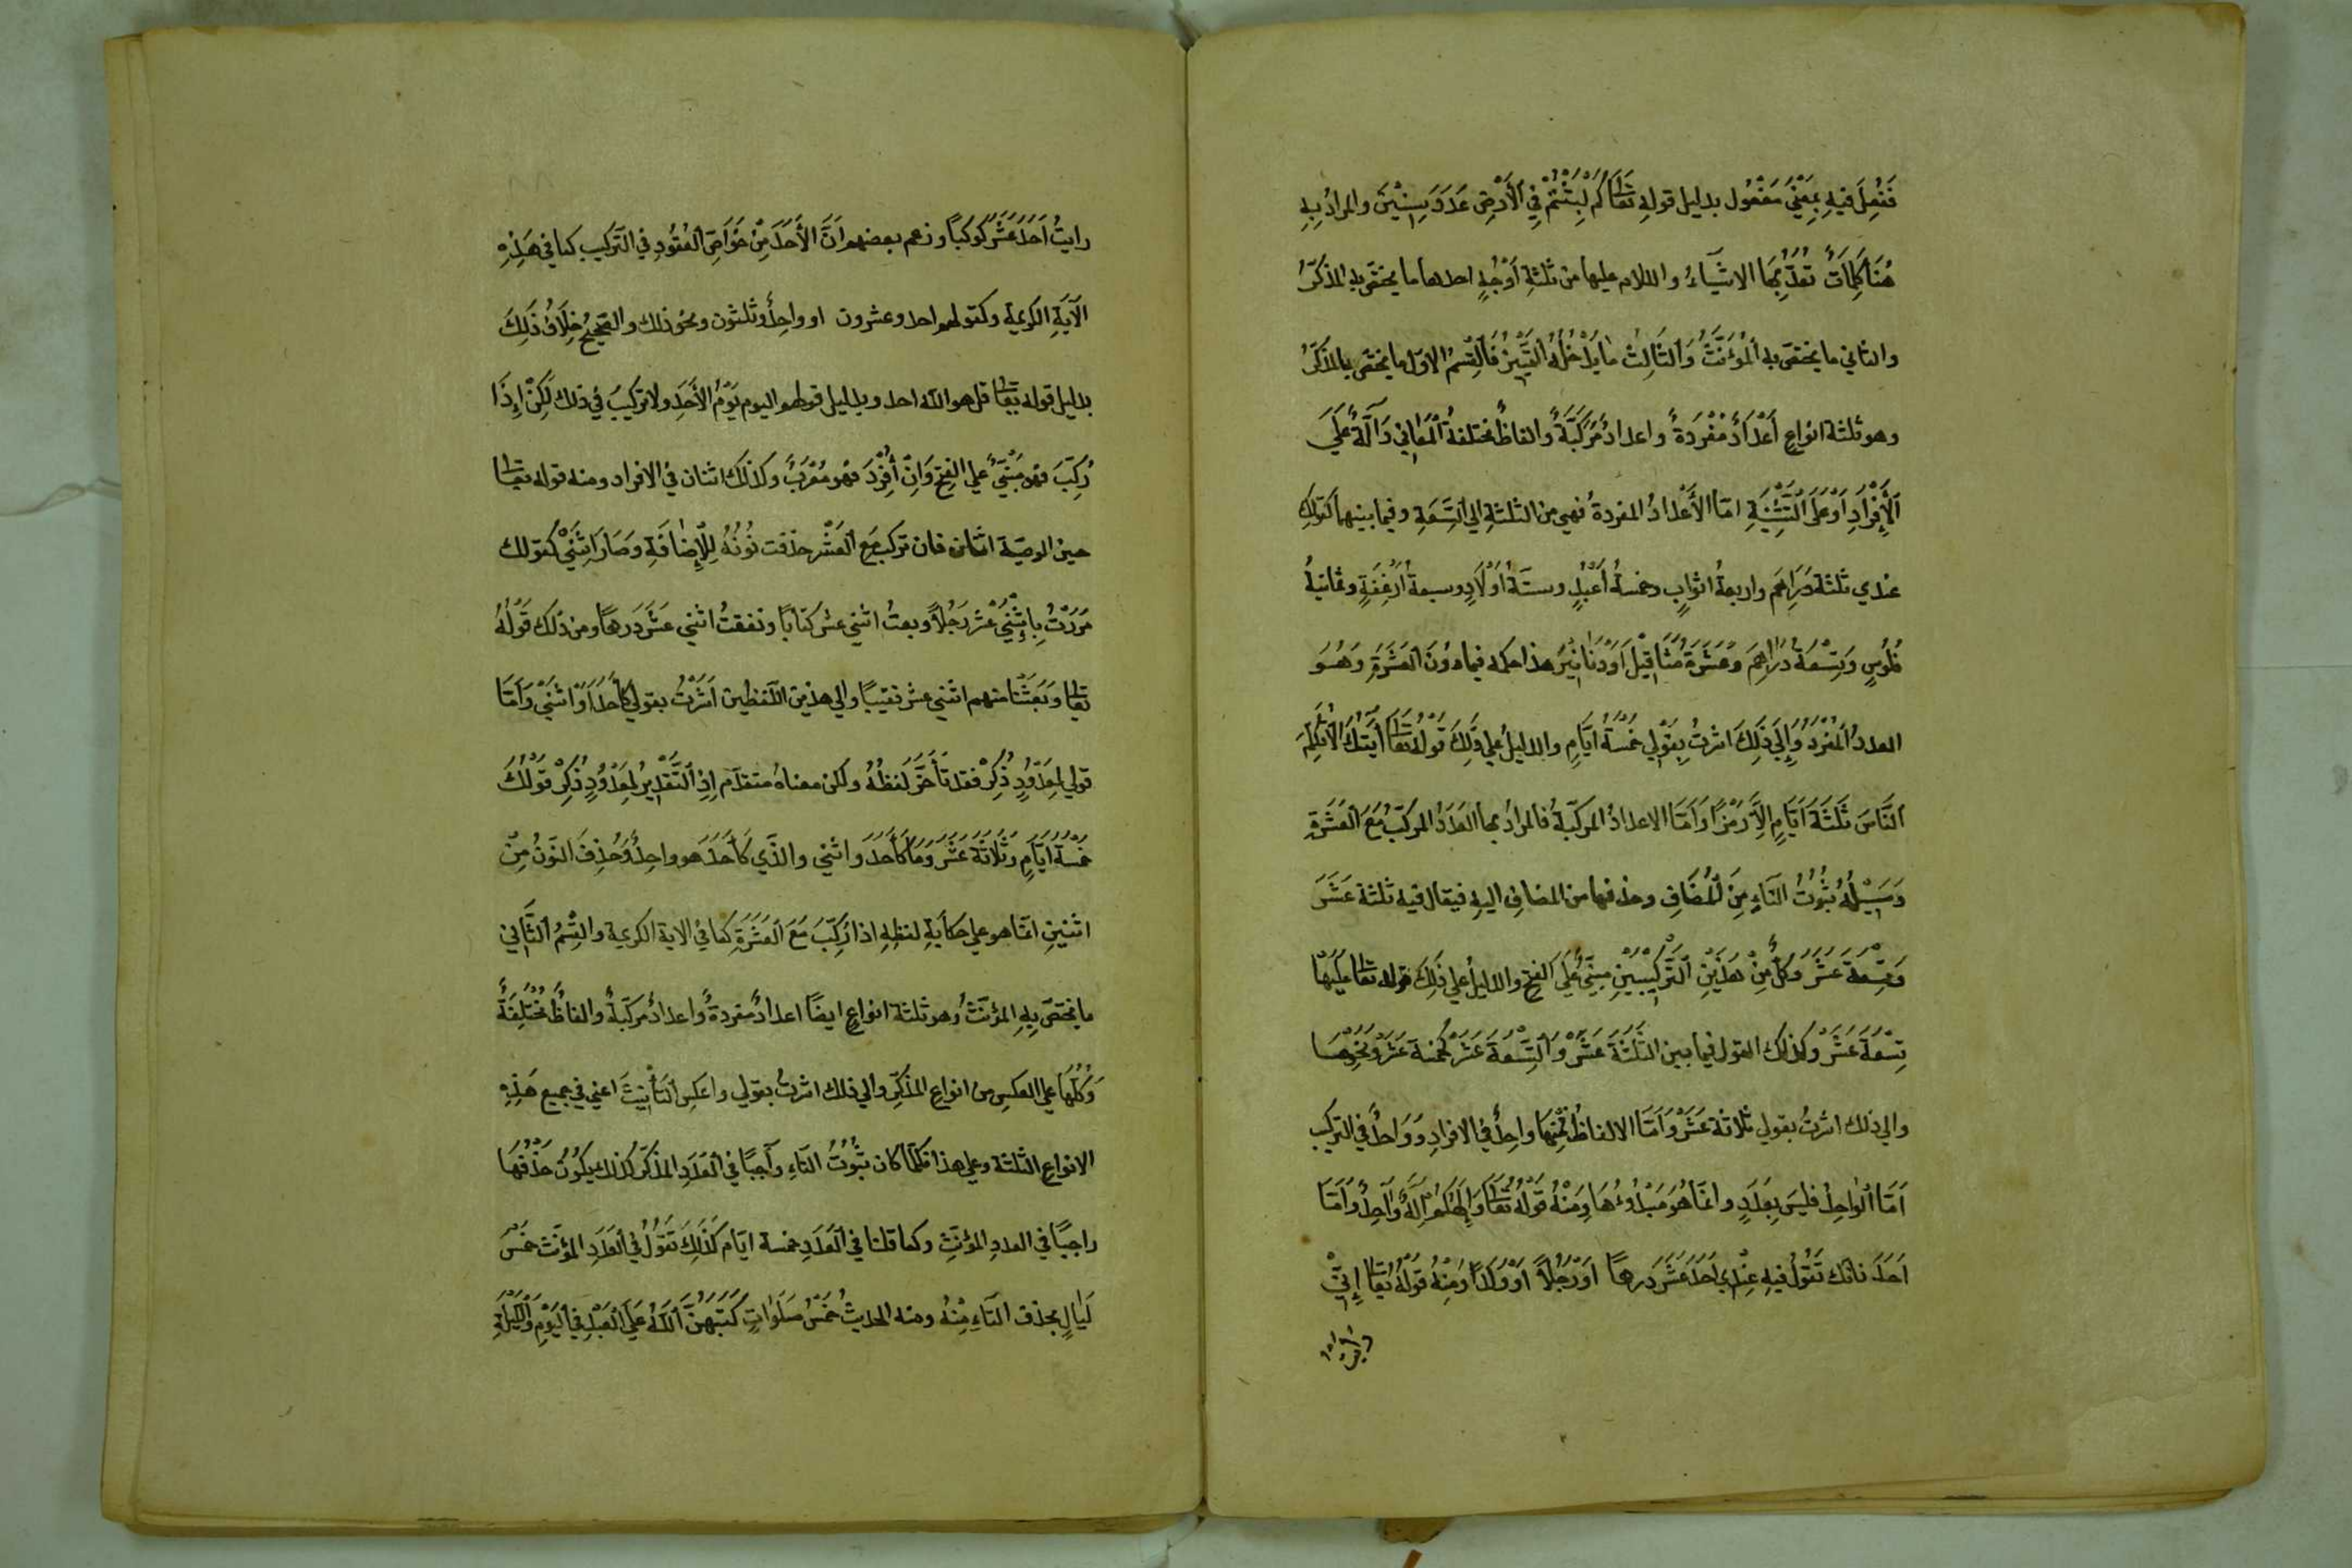 فَنُعِلَ فيهِ بِمَعْنَي مَفْعُول بدليل قولهِ تَعَا كَمْ لَبِثْتُمْ فِي اَلْأَرْضِ عَدَدَ سِنِيْنَ والمرادُ بِهِ
هُنَا كَلِمَاتٌ تُعَدُّ بِهَا الاشيَآءُ والكلام عليها من ثلثةِ أَوْجُهٍ احدها ما يختصّ بهِ المذَكَّرُ
والثاني ما يختصّ به اَلْمُؤَنَّثُ وَاَلثَالِثُ مَا يَدْخُلُهُ اَلتَّمْيِيْزُ فَاَلْقِسْمُ الاوّل ما يختصّ بالمذَكَّرُ
وهو ثلثة انواعٍ أَعْدَادٌ مُفْرَدَةٌ واعدادٌ مُرَكَّبَةٌ والفاظٌ مختلفةُ اَلْمَعَانِي دَآلَّةٌ عَلَيَ
اَلْإِفْرَادِ اَوْ عَلَيَ اَلتَّثْنِيَةِ امّا الأَعْدادُ المفردةُ فهي من الثلثةِ الي اَلتِسْعَةِ وفيما بينهما كقولك
عندي ثلثة دَرَاهِمَ واربعةُ اثوابٍ وخمسةُ أَعْبُدٍ وستةُ أوْلَادٍ وسبعةُ أَرْغِفَةٍ وثمانيةُ
فُلُوسٍ وَتِسْعَةُ دَرَاهِمَ وَعَشَرَةُ مَثَاقِيْلَ اَوْ دَنَانِيْرَ هذا حكمه فيما دُوْنَ اَلْعَشَرَةِ وَهُوَ
العددُ اَلْمُفْرَدُ وَإِلَيَ ذَلِكَ اشرتُ بِقَوْلِي خَمْسَةُ ايَّامٍ والدليلُ علي ذَلِكَ قَوْلُهُ تَعَا آيَتُكَ اَلَّا تُكَلِّمَ
اَلنَّاسَ ثَلَثَةَ اَيَّامٍ اِلَّا رَمْزًا وَاَمَّا الاعدادُ المركّبةُ فالمرادُ بها اَلْعَدَدُ المركّبُ مَعَ اَلْعَشَرَةِ
وَسَبِيْلُهُ ثُبُوْتُ التَاءِ مِنَ اَلْمُضَافِ وحذفها من المضافِ اليهِ فيقال فيهِ ثلثة عَشَرَ
وَتِسْعَةَ عَشَرَ وَكُلٌّ مِنْ هَذَيْنِ اَلتَّرْكِيْبَيْنِ مبنيٌّ عَلَيَ اَلفتحِ والدليلُ علي ذَلِكَ قوله تعا عَلَيْهَا
تِسْعَةَ عَشَرَ وكذلك القول فيما بين الثَّلَثَةَ عَشَرَ وَاَلتِّسْعَةَ عَشَرَ كخمسة عَشَرَ وَنَحْوِهَا
والي ذلك اشرتُ بقولي ثلاثة عَشَرَ وَاَمَّا الالفاظُ فَمِنْهَا واحِدٌ في الافرادِ وَوَاحِدٌ في التركيب
اَمَّا اَلْوَاحِدُ فليسَ بِعَدَدٍ وانمَا هُوَ مَبْدَؤُهَا وَمِنْهُ قَوْلُهُ تَعَا وَاِلَهُكُمْ اِلَهٌ وَاَحِدٌ وَاَمَّا
اَحَدَ فانك تَقُوْلُ فيهِ عِنْدِي أَحَدَ عَشَرَ دَرهمًا اَوْ رَجُلًا أَوْ وَلَدًا وَمِنْهُ قَوْلُهُ تَعَا إِنِّيْ
رايتُ
رايتُ أَحَدَ عَشَرَ كَوْكَبًا وزعم بعضهم اَنَّ الأَحَدَ مِنْ خَوَاصِّ اَلْعُقُودِ في التَّركيب كما في هَذِهِ
الآَيَةِ الكريمة وكقولهم احد وعشرون او واحِدٌ وثلثون ونحو ذلك والصَّحِيْحُ خِلَافُ ذَلِكَ
بدليل قوله تعَا قل هو الله احد وبدليل قولهم اليوم يَوْمُ الأَحَدِ ولا تركيبُ فِي ذلك لَكِنْ إِذَا
رُكِّبَ فهو مَبْنِيٌّ علي الفتحِ وَاِنْ أُفْرِدَ فهو مُعْرَبٌ وكذلك اثنان في الافراد ومنه قوله تعا
حين الوصيّة اثنان فان تركب مَعَ اَلْعَشْرِ حذفت نُوْنُهُ لِلْإِضَافَةِ وَصَارَ اِثْنَيْ كقولك
مَرَرْتُ بِاِثْنَيْ عَشَرَ رَجُلًا وبعتُ اثني عشر كتابًا ونفقتُ اثني عَشَرَ دَرهمًا ومن ذلك قَوْلُهُ
تعَا وَبَعَثْنَا منهم اثني عشر نقيبًا والي هذين اللّفظين اَشَرْتُ بقولي كَأَحَدَ اَوْ اثْنَيْ وَاَمَّا
قولي لِمَعْدُوْدٍ ذُكِرْ فقد تَأَخَّرَ لَفظُهُ ولكن معناهُ متقدّم اِذِ اَلتَّقْدِيْرُ لِمَعْدُوْدٍ ذُكِرْ قَوْلُكَ
خَمْسَةُ أيَّامٍ وَثَلَاثَةَ عَشَرَ وَمَا كَأَحَدَ واثني والذّي كَأَحَدَ هو واحِدٌ وَحُذِفَ النّوْنُ مِنْ
اثنينِ انمّا هو علي حكايةِ لفظِهِ اذا رُكِّبَ مَعَ اَلْعَشَرَةِ كما في الاية الكريمة والقِسْمُ اَلثَّانِي
ما يختصّ بِهِ المؤنّثُ وهو ثلثة انواعٍ ايضًا اعدادٌ مفردةٌ واعدادٌ مركّبةٌ والفاظٌ مُخْتَلِفَةٌ
وَكُلُّهَا علي العكسِ من انواع المذكّرِ والي ذلك اشرتُ بقولي واعكس اَلتَأْنِيْثَ اعني في جميع هَذِهِ
الانواعِ الثلثة وعلي هذا فكَمَا كان ثُبُوْتُ التاءِ وآجِبًا في اَلعَدَدِ المذكّر كذلك يكُوْنُ حَذْفُهَا
واجبًا في العددِ المؤنّثِ وكما قلنا في اَلْعَدَدِ خمسة ايّام كَذَلِكَ تَقُوْلُ فِي اَلْعَدَدِ المؤنّث خَمْسَ
لَيَالٍ بحذف التاءِ مِنْهُ ومنه الحديثُ خَمْسُ صَلَوَاتٍ كَتَبَهُنَّ اَللّهُ عَلَيَ اَلْعَبْدِ فِي اَلْيَوْمِ وَاَللَّيْلَةِ